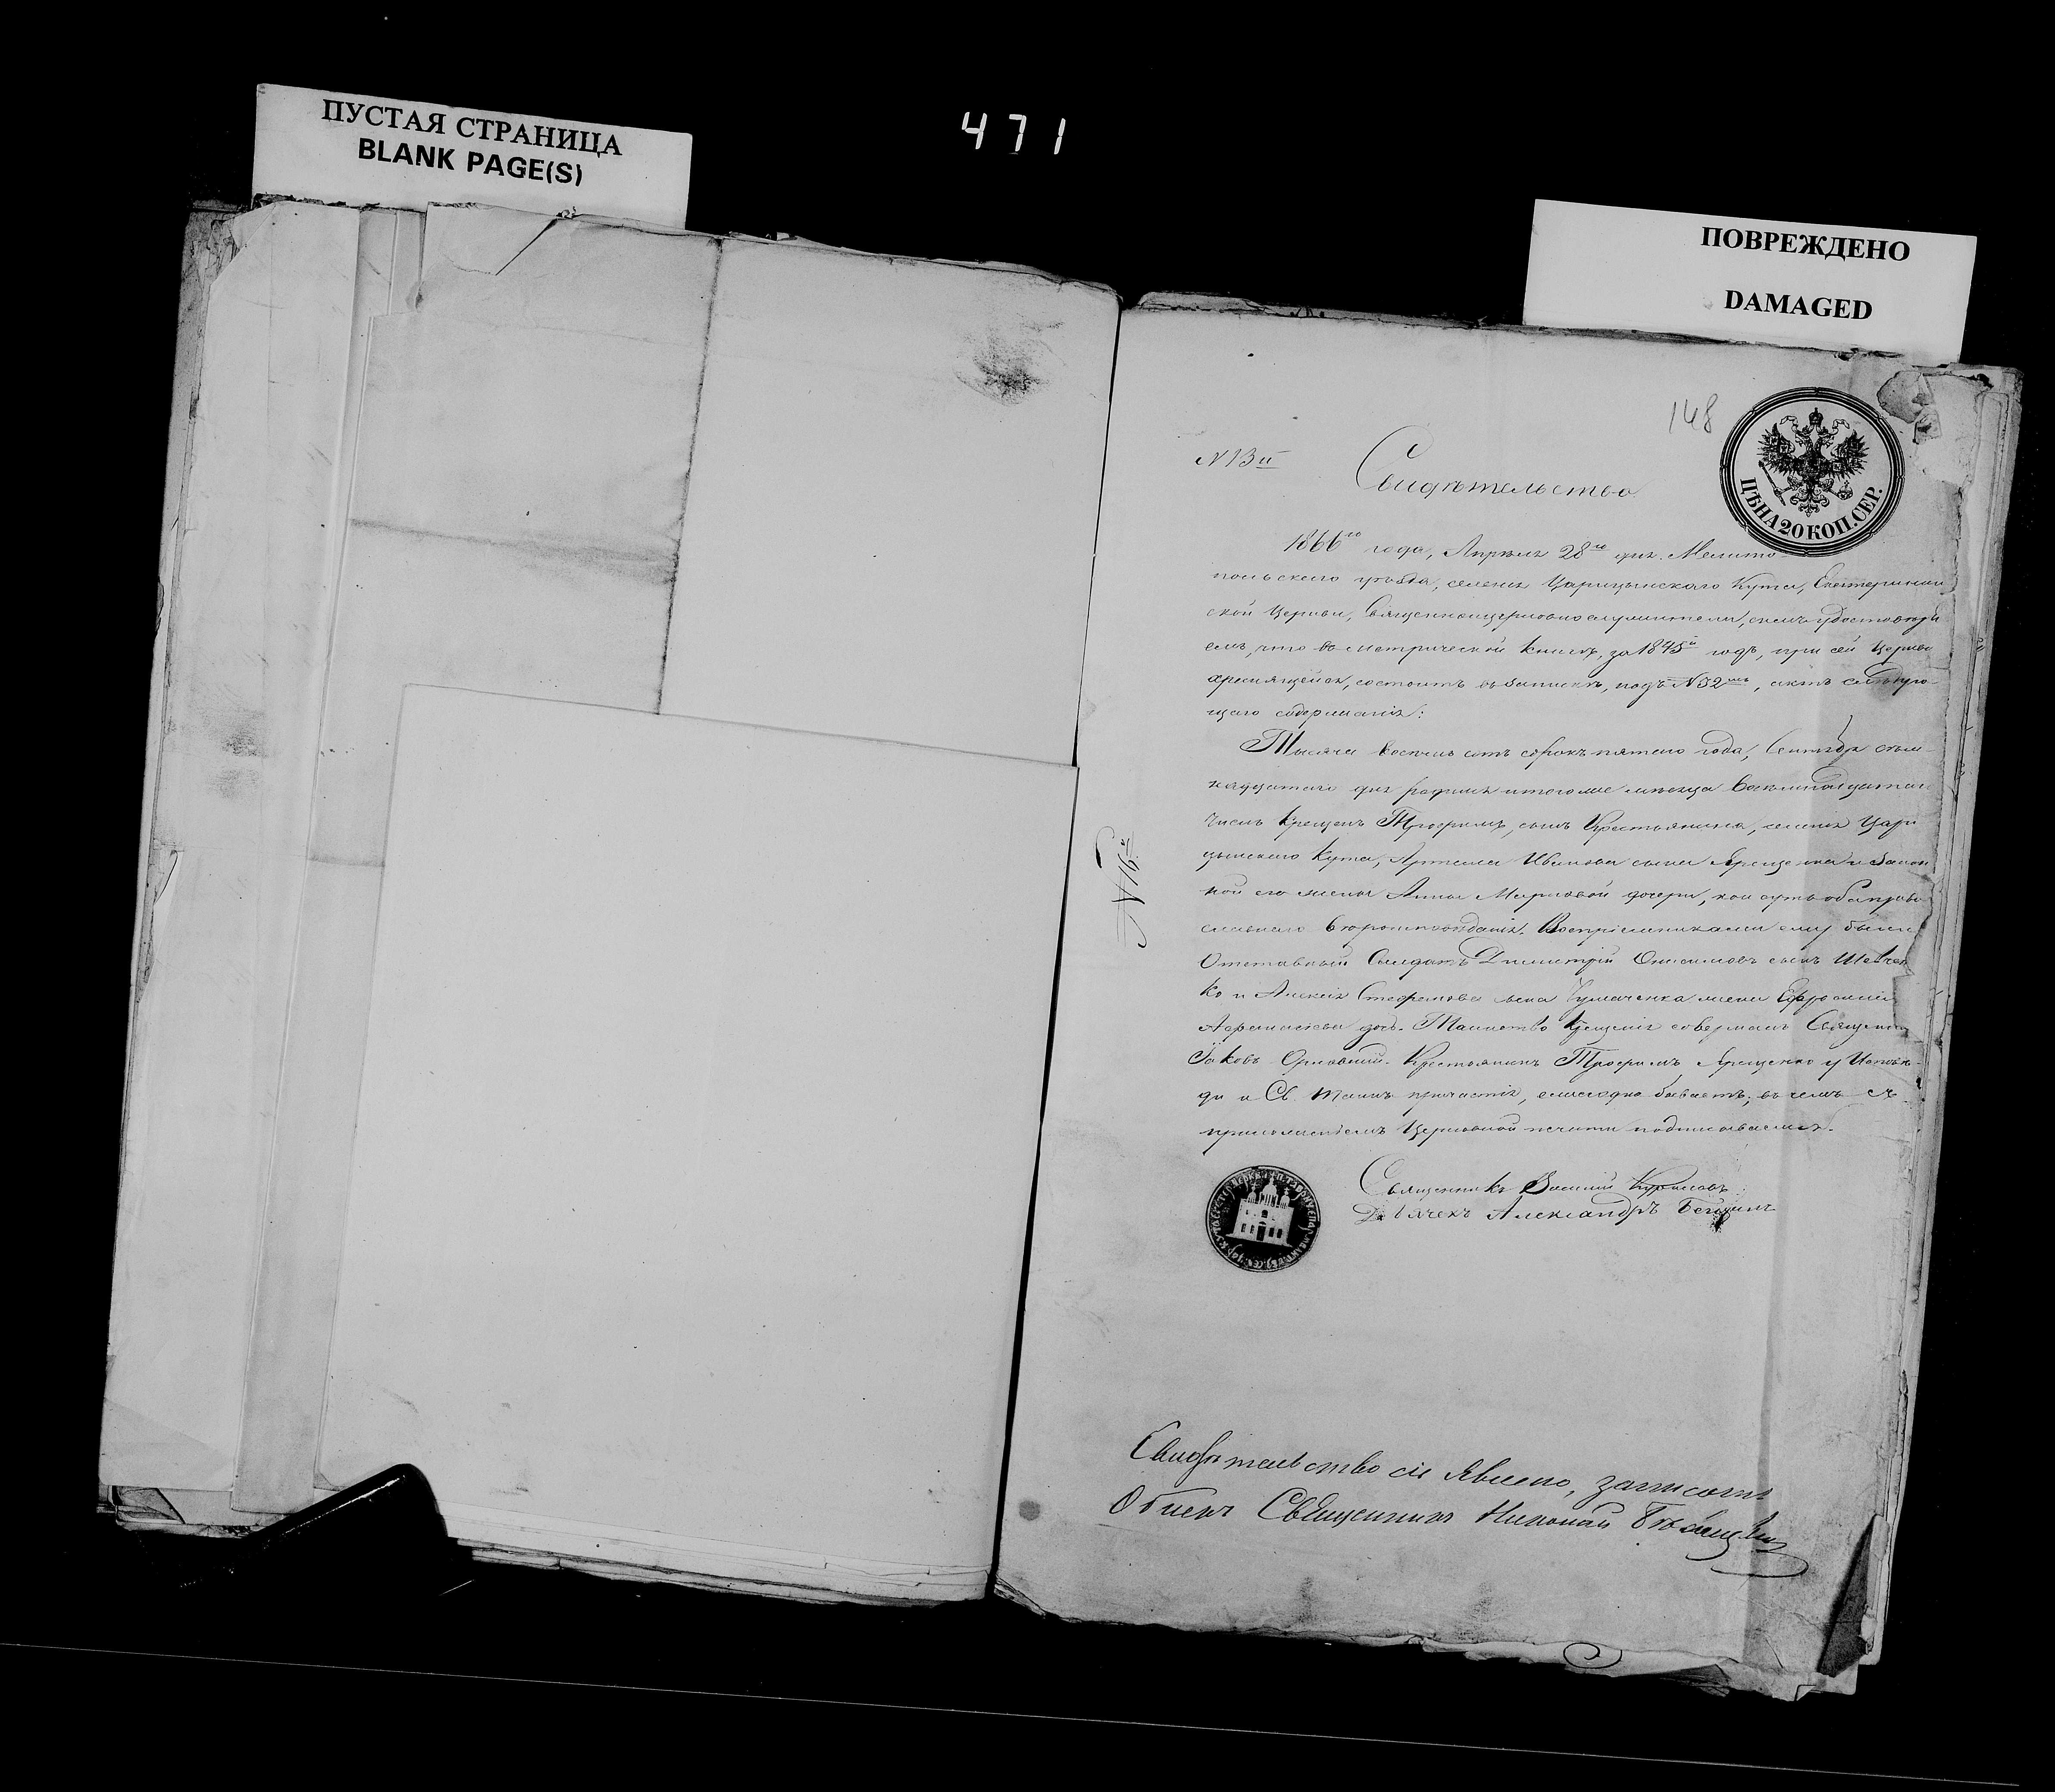 ПУСТАЯ СТРАНИЦА
BLANK PAGE(S)
471
ПОВРЕЖДЕНО
DAMAGED
148
ЦѢНА 20 КОП. СЕР.
N 13й
Свидѣтельство
1866го года, Апрѣля 28го дня. Мелито-
польскаго уѣзда, селенія Царицынскаго Кута, Екатеринин
ской Церкви, Священноцерковнослужители, симъ удостовѣря
емъ, что въ метрической книгѣ, за 1845й годъ, при сей Церкви
хранящейся, состоитъ въ запискѣ, подъ N 52мъ, актъ слѣдую-
щаго содержанія:
Тысяча восемь сотъ сорокъ пятаго года, Сентября
надцатаго дня родился и тогоже мѣсяца восемнадцатаго
числа крещенъ Трофимъ, сынъ Крестьянина, селенія Цари
цынскаго Кута, Артема Иванова сына Ярещенка и закон
ной его жены Анны Марковой дочери, кои суть оба право
славнаго вѣроисповѣданія. Воспріемниками ему были
Отставный Солдатъ Димитрій Онисимовъ сынъ Шевчен
ко и Алексія Стефанова сына Чумаченка жена Ефросинія
Афанасіева дочь. Таинство Крещенія совершалъ Священникъ
Іаковъ Орловскій. Крестьянинъ Трофимъ Ярещенко у Исповѣ-
ди и Св. Таинъ причастія, ежегодно бываетъ; въ чемъ съ
приложеніемъ Церковной печати подписываемся.
N 15й
Священникъ Василій
Дьячекъ Александръ
Свидѣтельство сіе явлено, записать
Обыскъ Священникъ Николай